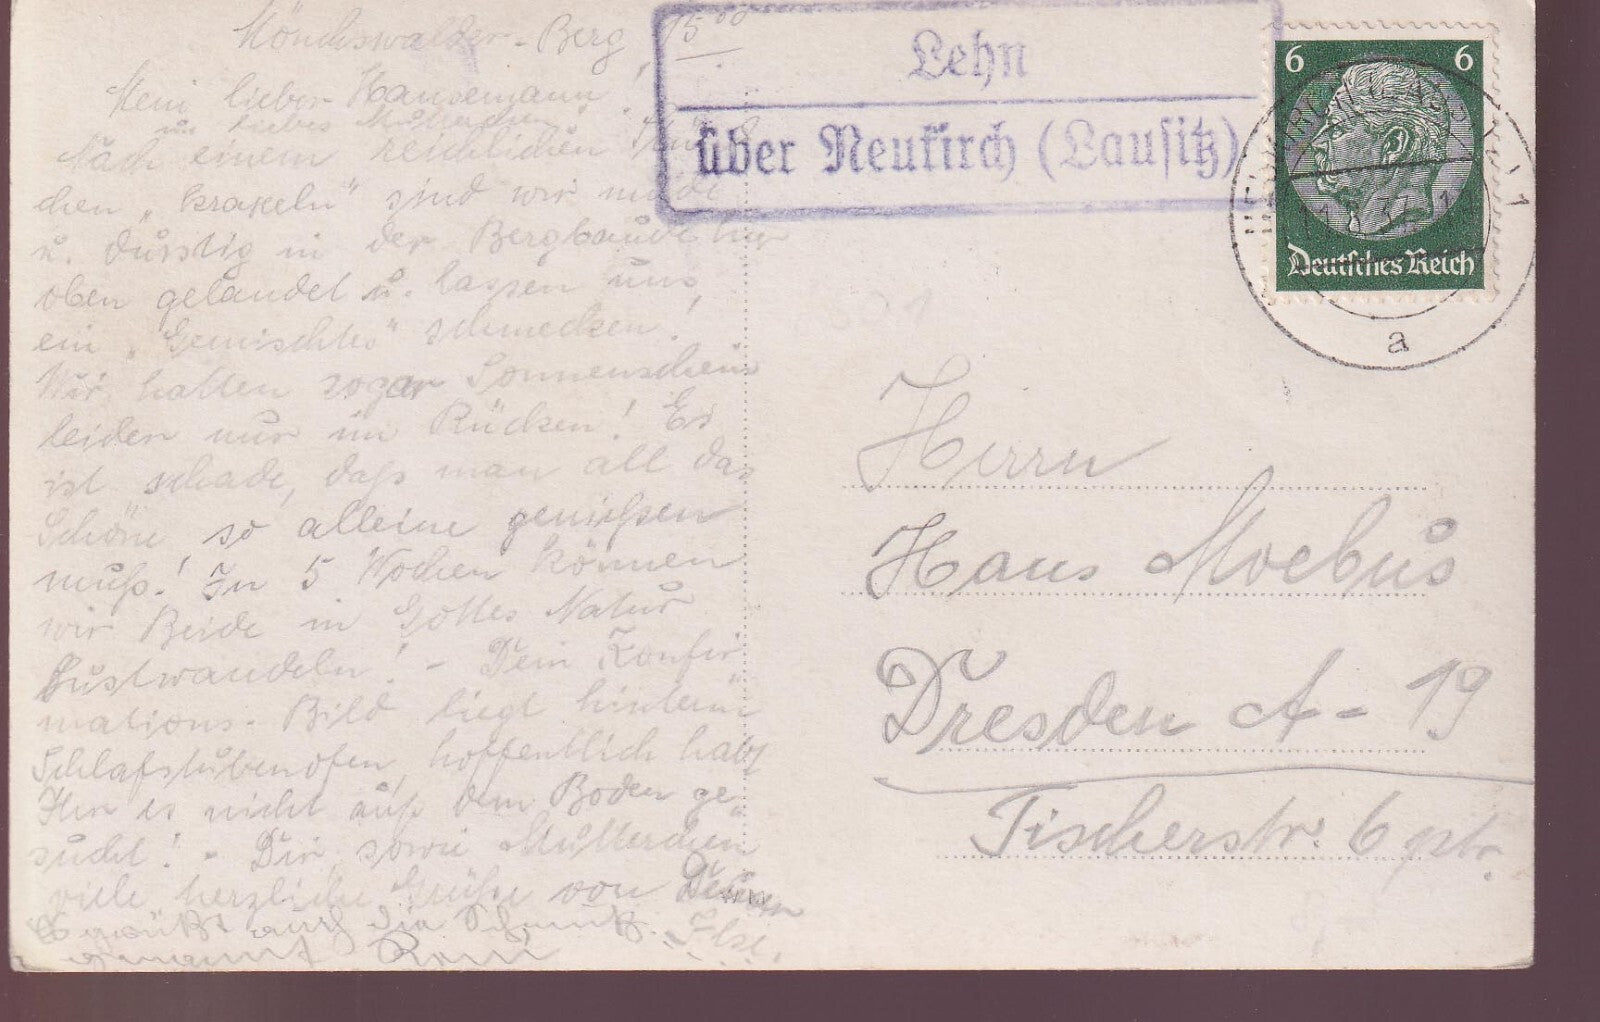 Mönchswalder-Berg, 15⁰⁰
Mein lieber Hansemann!
u. liebes Mütterchen
Nach einem reichlichen
chen „krakeln" sind wir müde
u. durstig in der Bergbaude hier
oben gelandet u. lassen uns
ein „Gemischtes" schmecken!
Wir hatten sogar Sonnenschein
leider nur im Rücken! Es
ist schade, daß man all das
Schöne so alleine genießen
muß! In 5 Wochen können
wir Beide in Gottes Natur
lustwandeln! - Dein Konfir
mations-Bild liegt hinterm
Schlafstubenofen, hoffentlich habt
Ihr es nicht auf dem Boden ge-
sucht! - Dir, sowie Mütterchen
viele herzliche Grüße von Deiner
Ilse.
Es grüßt auch die
Lehn
über Neukirch (Lausitz)
6 6
Deutsches Reich
NEUKIRCH (LAUSITZ) 1
37
a
Herrn
Hans Moebus
Dresden A-19
Tischerstr. 6 ptr.